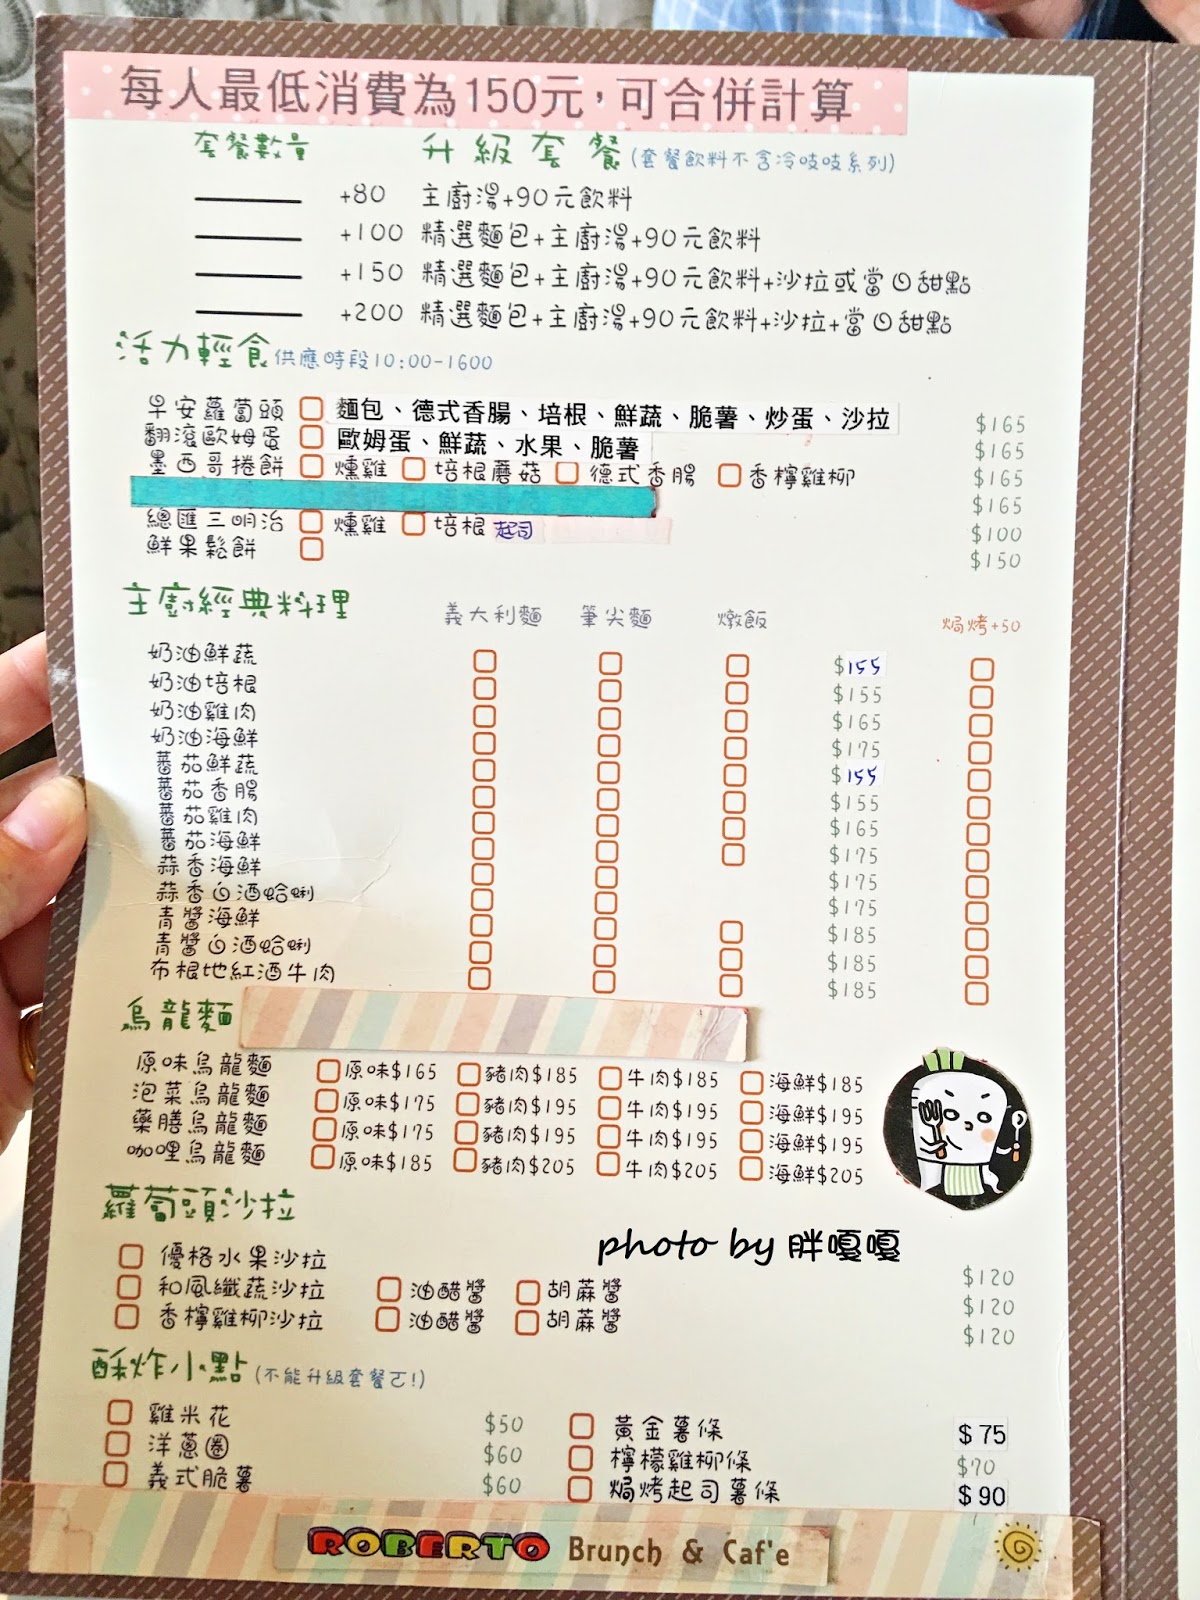 每人最低消費為150元，可合併計算
套餐數量 升級套餐 (套餐飲料不含冷吱吱系列)
+80 主廚湯+90元飲料
+100 精選麵包+主廚湯+90元飲料
+150 精選麵包+主廚湯+90元飲料+沙拉或當日甜點
+200 精選麵包+主廚湯+90元飲料+沙拉+當日甜點
活力輕食 供應時段10:00-1600
早安蘿蔔頭 麵包、德式香腸、培根、鮮蔬、脆薯、炒蛋、沙拉 $165
翻滾歐姆蛋 歐姆蛋、鮮蔬、水果、脆薯 $165
墨西哥捲餅 燻雞 培根蘑菇 德式香腸 香檸雞柳 $165
$165
總匯三明治 燻雞 培根 起司 $100
鮮果鬆餅 $150
主廚經典料理 義大利麵 筆尖麵 燉飯 焗烤+50
奶油鮮蔬 $155
奶油培根 $155
奶油雞肉 $165
奶油海鮮 $175
蕃茄鮮蔬 $155
蕃茄香腸 $155
蕃茄雞肉 $165
蕃茄海鮮 $175
蒜香海鮮 $175
蒜香白酒蛤蜊 $175
青醬海鮮 $185
青醬白酒蛤蜊 $185
布根地紅酒牛肉 $185
烏龍麵
原味烏龍麵 原味$165 豬肉$185 牛肉$185 海鮮$185
泡菜烏龍麵 原味$175 豬肉$195 牛肉$195 海鮮$195
藥膳烏龍麵 原味$175 豬肉$195 牛肉$195 海鮮$195
咖哩烏龍麵 原味$185 豬肉$205 牛肉$205 海鮮$205
蘿蔔頭沙拉
photo by 胖嘎嘎
優格水果沙拉 $120
和風纖蔬沙拉 油醋醬 胡蔴醬 $120
香檸雞柳沙拉 油醋醬 胡蔴醬 $120
酥炸小點 (不能升級套餐ㄛ!)
雞米花 $50 黃金薯條 $75
洋蔥圈 $60 檸檬雞柳條 $70
義式脆薯 $60 焗烤起司薯條 $90
ROBERTO Brunch & Caf'e